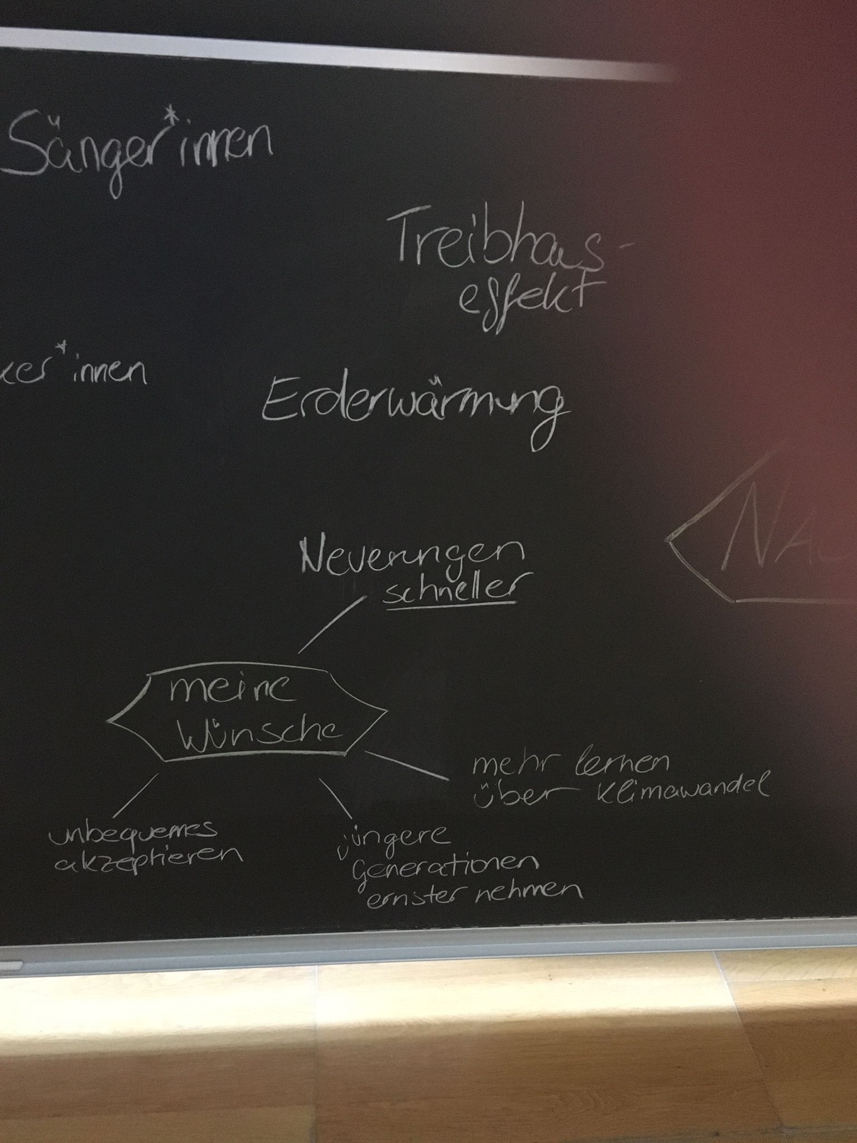 Sänger*innen
Treibhaus-
effekt
ker*innen
Erderwärmung
Neuerungen
schneller
NA
meine
Wünsche
mehr lernen
über Klimawandel
unbequemes
akzeptieren
jüngere
Generationen
ernster nehmen